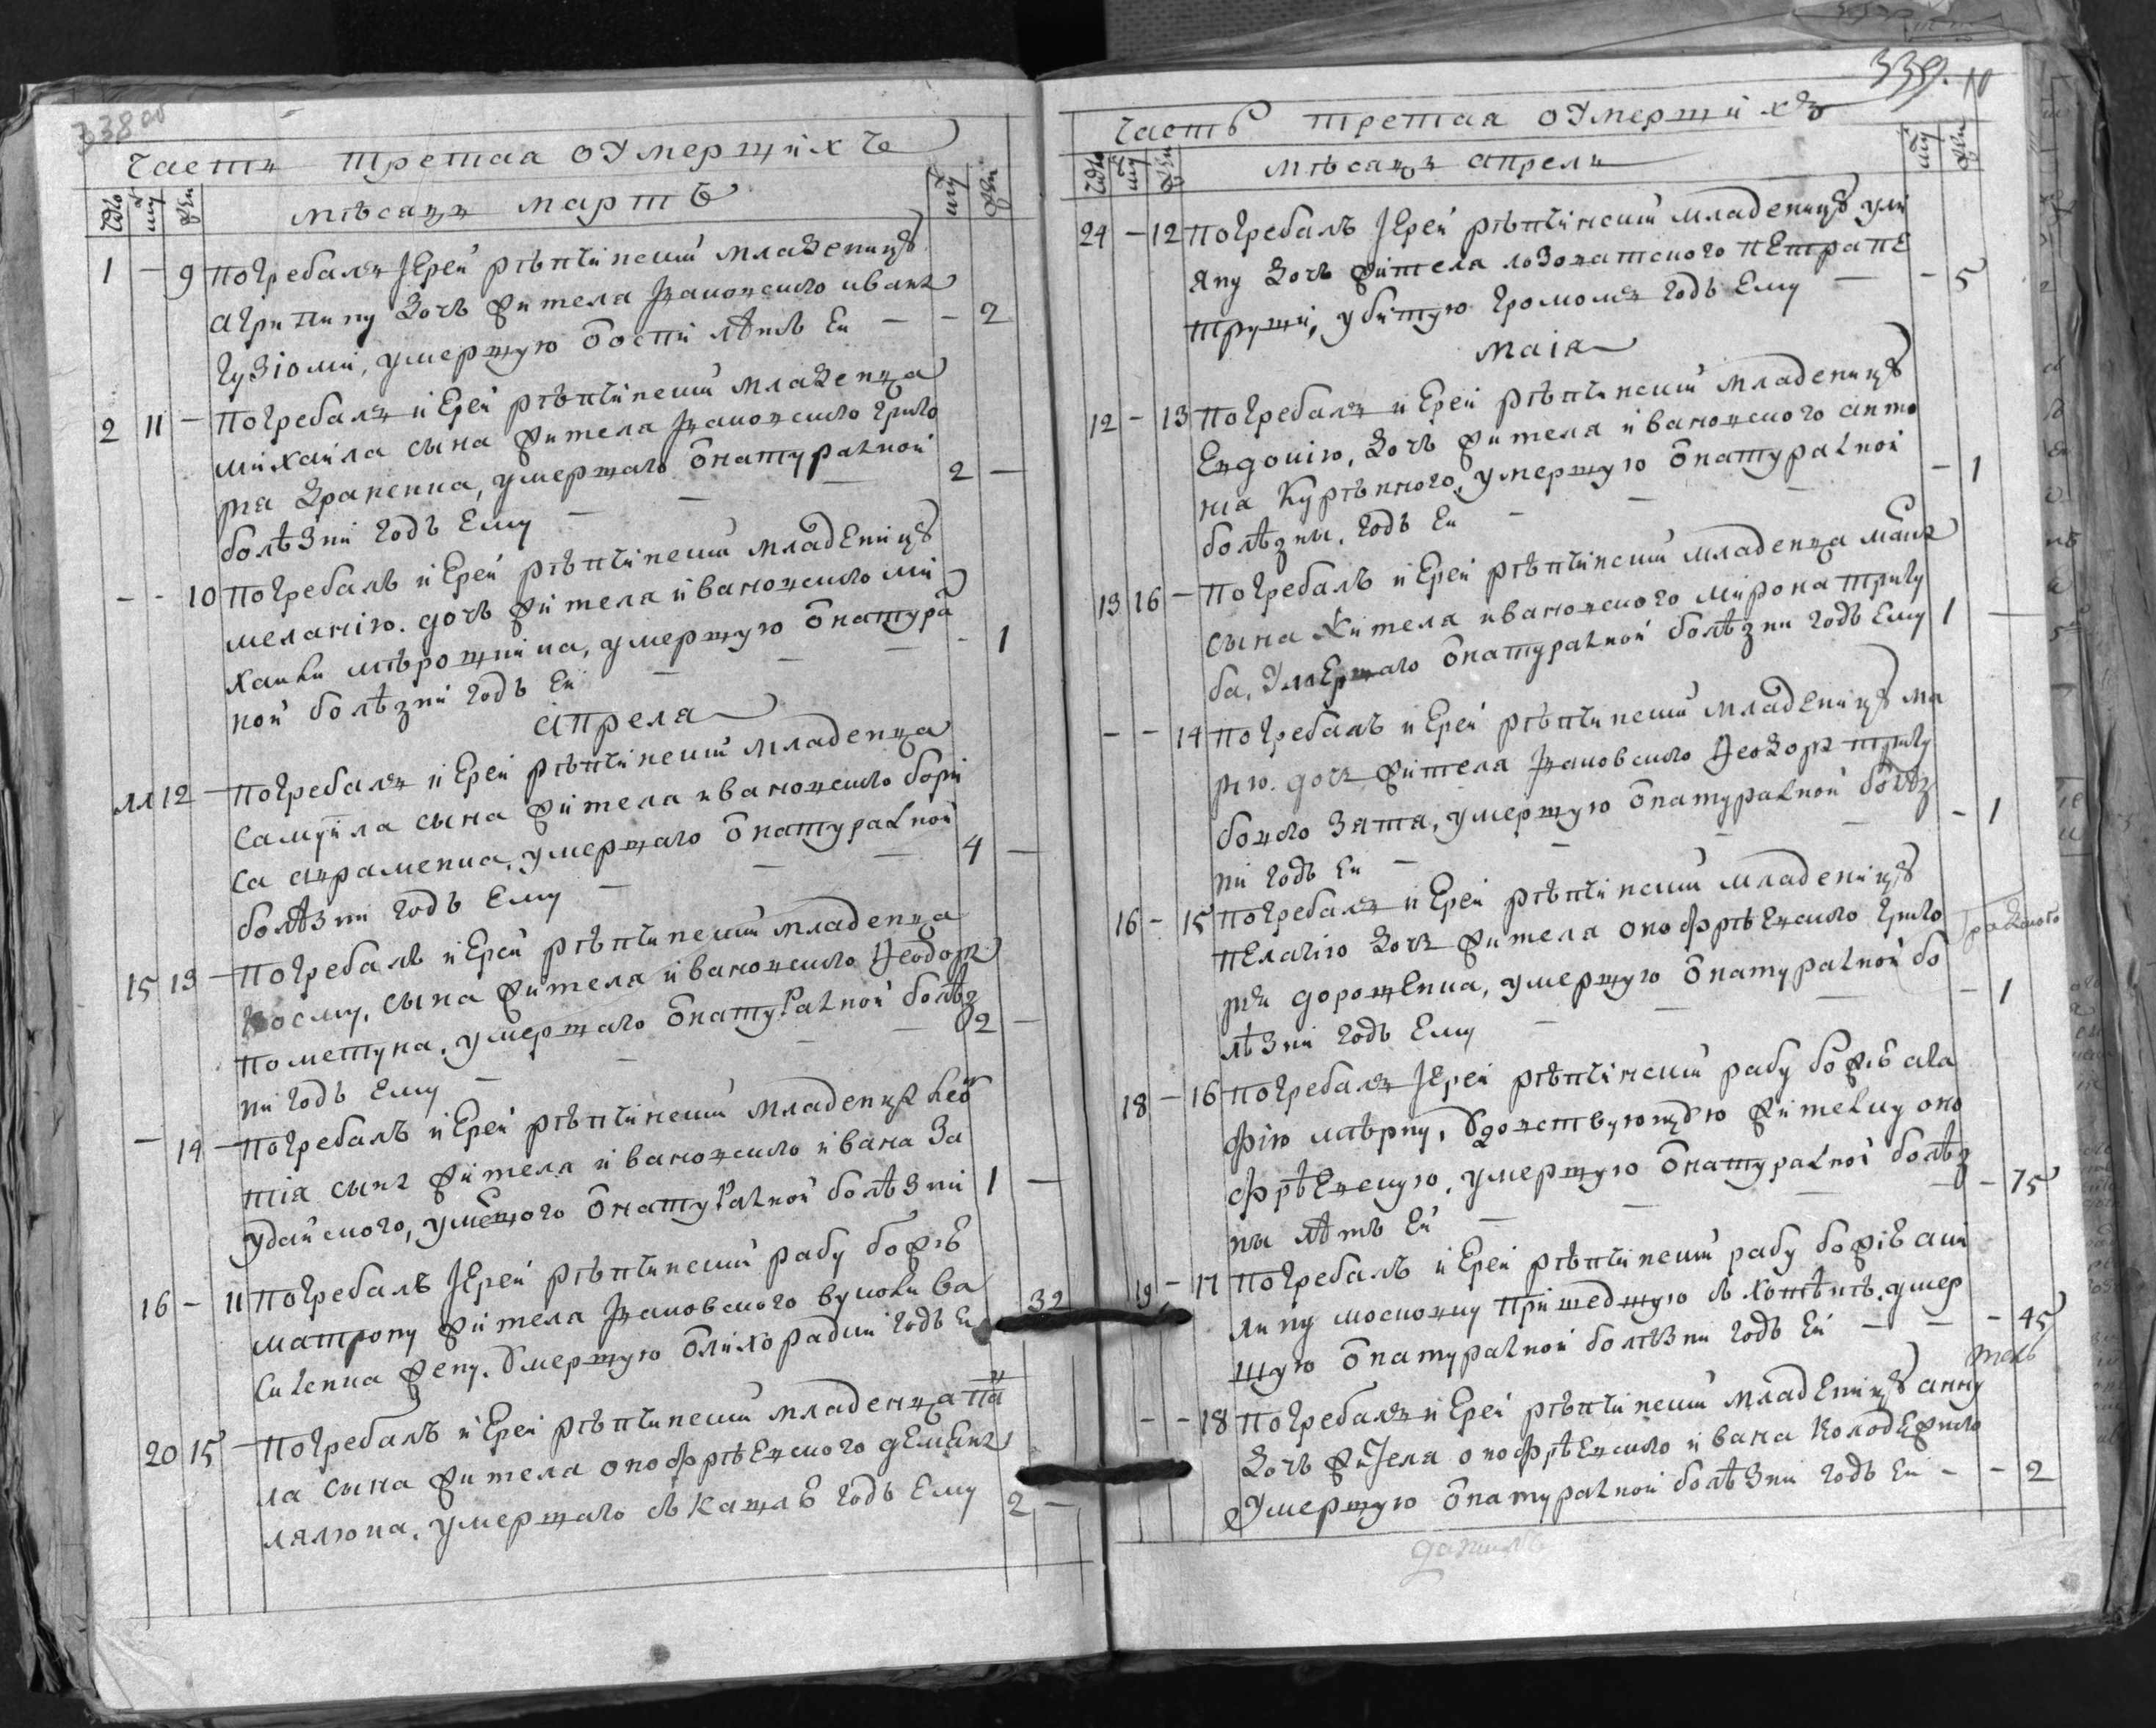 338 об
Часть третая оумершихъ
число муж жен мѣсяцъ мартъ муж жен
1 - 9 погребалъ Іерей рѣпкинскии младеницѣ
агрипину дочь жителя Івановского ивана
гузіоми, умершую воспи лѣтъ Ей - - 2
2 11 - погребалъ іерей рѣпкинскии младенца
михаила сына жителя Івановского григо
рия драненка, умершаго натуралной
болѣзни годъ Ему - - - 2 -
- - 10 погребалъ іерей рѣпкинскии младеницѣ
меланію. дочь жителя ивановского ми
хаики мѣрошника, умершую натура
ной болѣзни годъ Ей - - - - 1
Апреля
12 - погребалъ іерей рѣпкинскии младенца
самуйла сына жителя ивановского бори
са авраменка, умершаго натуралной
болѣзни годъ Ему - - - 4 -
15 13 - погребалъ іерей рѣпкинскии младенца
косму, сына жителя ивановского Феодора
пометуна, умершаго натуралной болѣз
ни годъ Ему - - - - 2 -
- 14 - погребалъ іерей рѣпкинскии младенца лео
тія сына жителя ивановского ивана за
удаиского, умершого натуралной болѣзни 1 -
16 - 11 погребалъ Іерей рѣпкинскии рабу божію
матрону жителя Івановского вуколи ва
силенка жену. умершую лихорадки годъ Ей 32
20 15 - погребалъ іерей рѣпкинскии младенца па
ла сына жителя онофріевского демяна
лялюка, умершаго кашлѣ годъ Ему 2 -
339. 10
Часть третая оумершихъ
число муж жен мѣсяцъ апрель муж жен
24 - 12 погребалъ Іерей рѣпкинскии младеницѣ ули
яну дочь жителя лозоватского петра пе
трущи, убитую громомъ годъ Ему - - 5
Маія
12 - 13 погребалъ іерей рѣпкинскии младеницѣ
Евдокию, дочь жителя ивановского анто
на Курѣнного, умершую натуралной
болѣзны, годъ Ей - - - - 1
13 16 - погребалъ іерей рѣпкинскии младенца
сына жителя ивановского мирона тригу
ба, умершаго натуралной болѣзни годъ Ему 1 -
- - 14 погребалъ іерей рѣпкинскии младеницѣ ма
рию. дочь жителя Івановского Феодора тригу
бового зятя, умершую натуралной болѣз
ни годъ Ей - - - - 1
16 - 15 погребалъ іерей рѣпкинскии младеницѣ
пелагію дочь жителя онофріевского григо
рія дорошенка, умершую натуралной бо
лѣзни годъ Ему - - - - 1
18 - 16 погребалъ Іерей рѣпкинскии рабу божію ага
фію мѣрну, вдовствующую жителку оно
фріевскую, умершую натуралной болѣз
ны лѣтъ Ей - - - - 75
19 - 17 погребалъ іерей рѣпкинскии рабу божію аки
лину московку пришедшую умер
шую натуралной болѣзни годъ Ей - - - 45
- - 18 погребалъ іерей рѣпкинскии младеницѣ анну
дочь жителя онофріевского ивана колодежного
умершую натуралной болѣзни годъ Ей - - 2